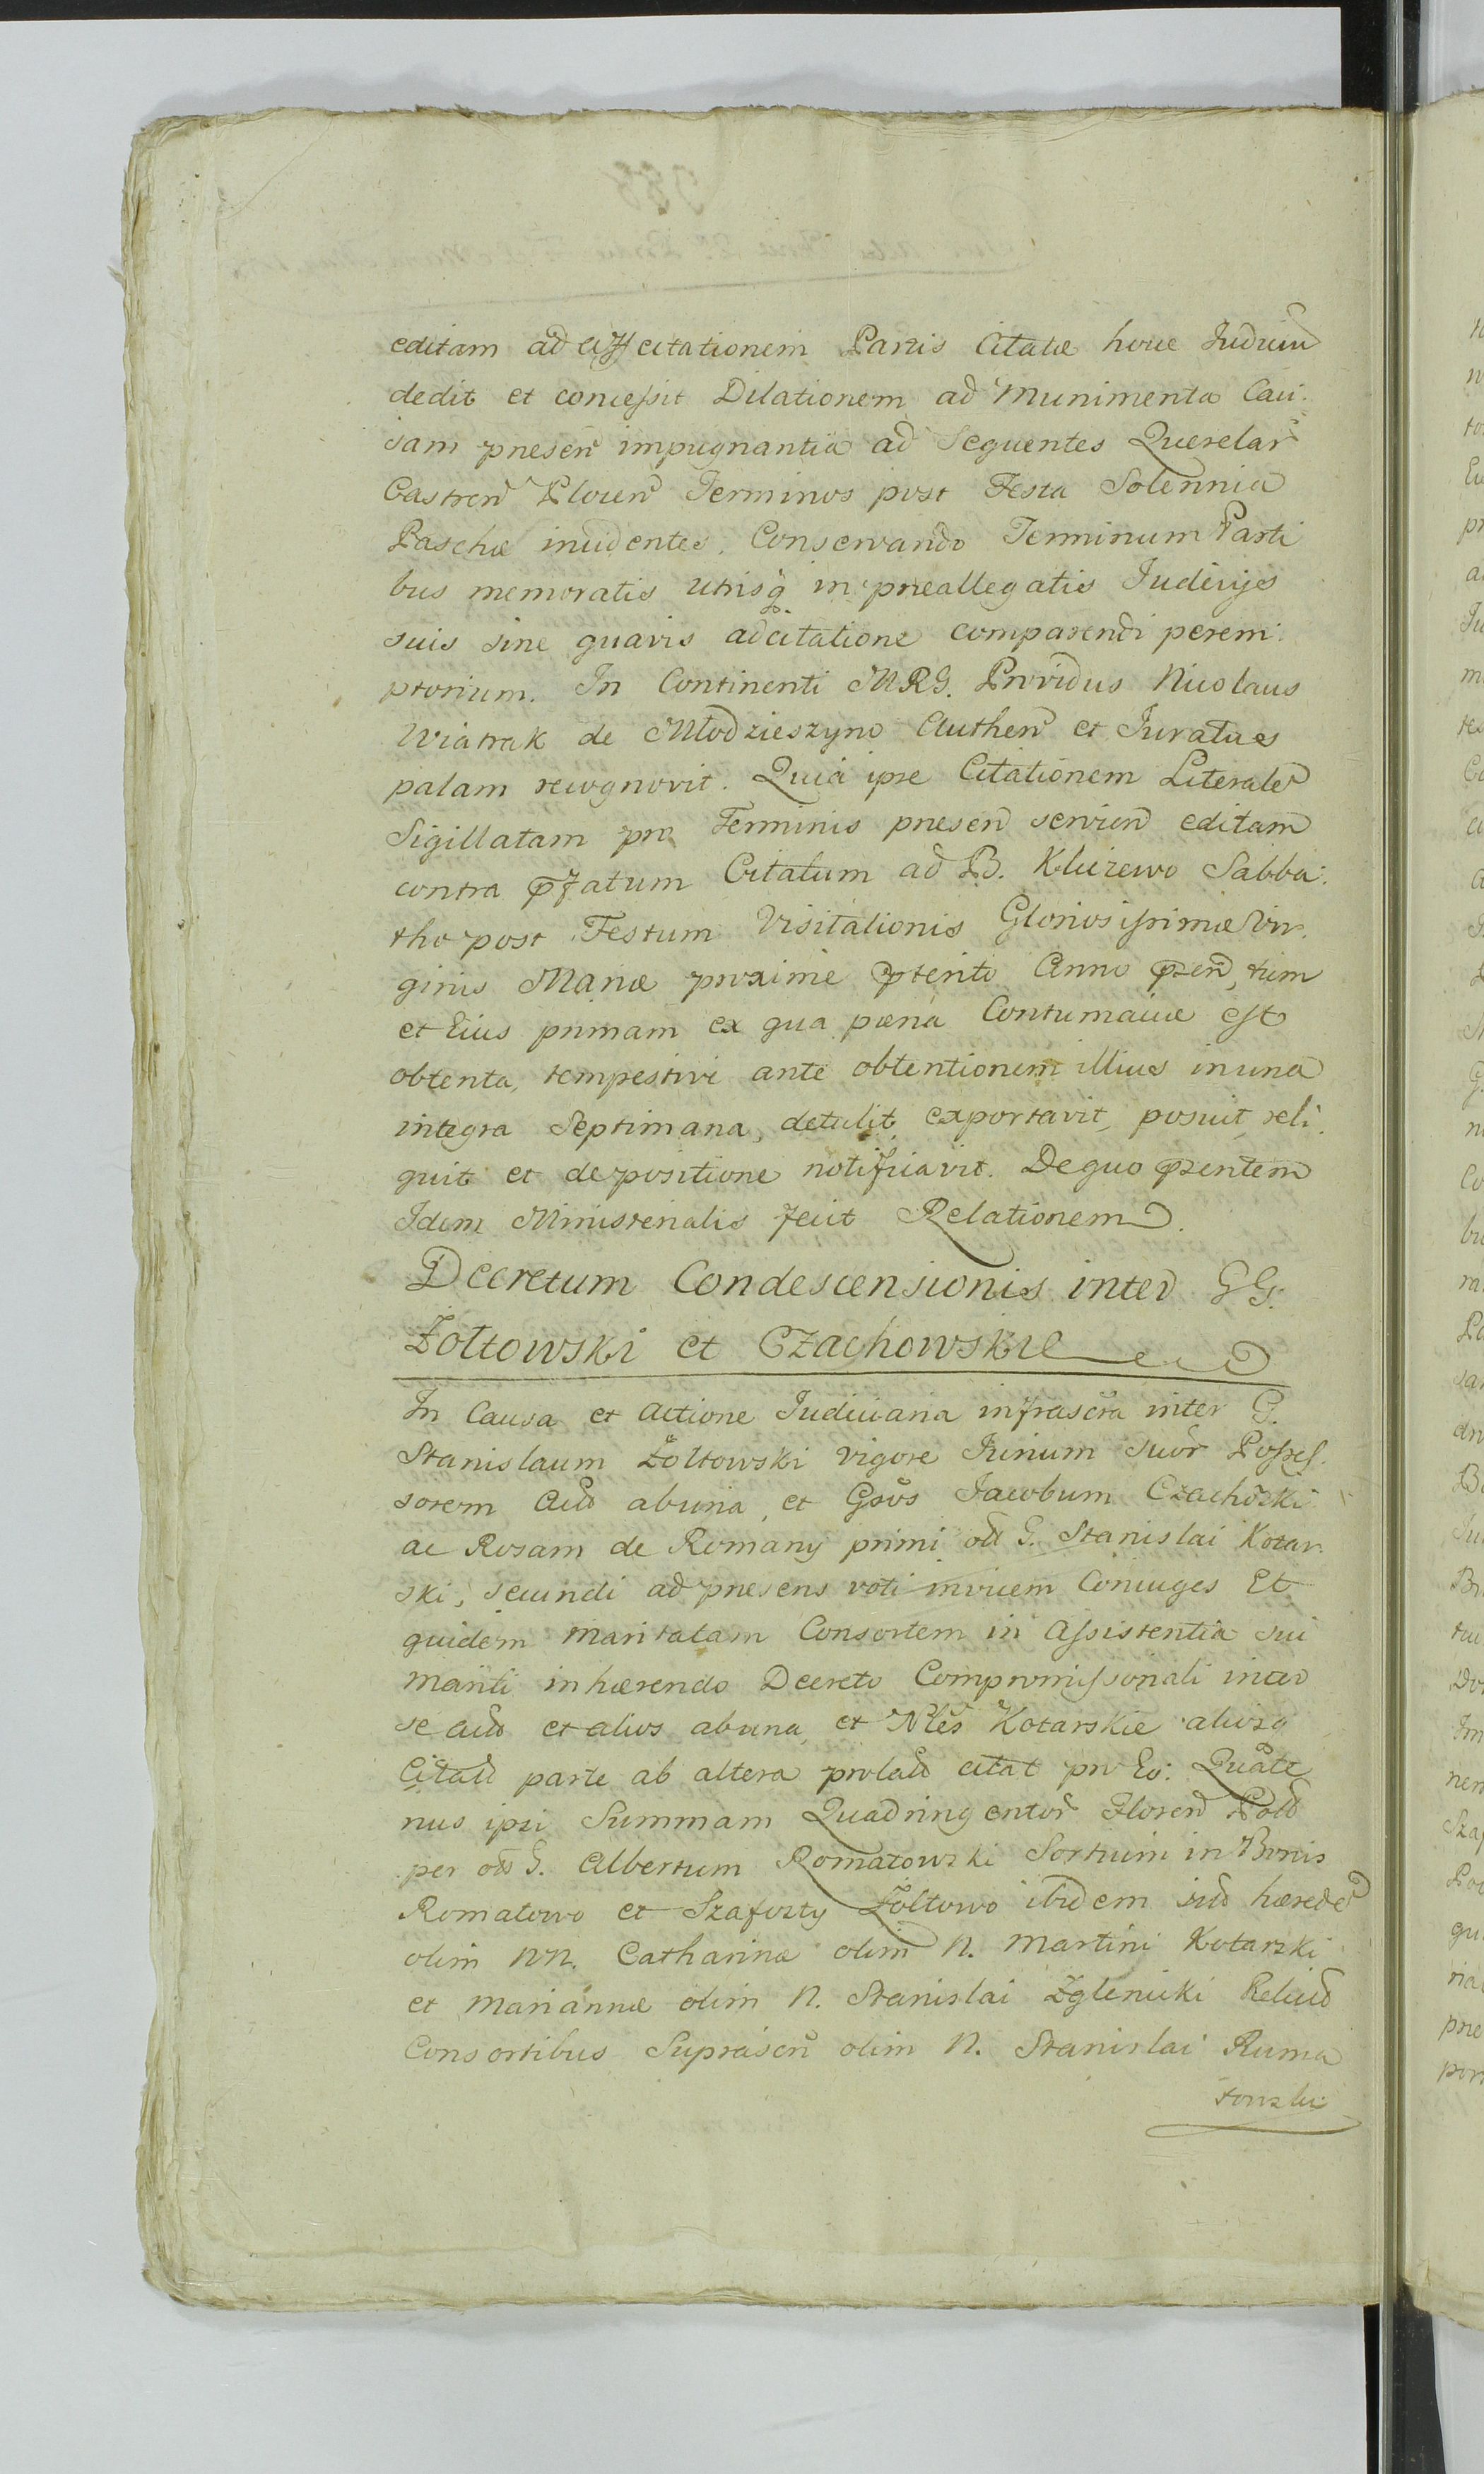 editam ad affectationem Partis Citatæ hocce Judiciũ
dedit et concessit Dilationem ad Munimenta Cau:
sam præseñ impugnantia ad Sequentes Querelar̃
Castreñ Ploceñ Terminos post Festa Solennia
Paschæ incidentes. Conservando Terminum Parti
bus memoratis utrisq̃ in præallegatis Judicijs
suis sine quavis adcitatione comparendi perem:
ptorium. In Continenti MRG. Providus Nicolaus
Wiatrak de Młodzieszyno Autheñ et Juratus
palam recognovit. Quia ipse Citationem Literalẽ
Sigillatam pro Terminis præseñ servieñ editam
contra p̃fatum Citatum ad B. Kluczewo Sabba:
tho post Festum Visitationis Gloriosissimæ Vir:
ginis Mariæ proxime p̃terito Anno p̃zeñ, tum
et Eius primam ex qua pæna Contumaciæ est
obtenta, tempestive ante obtentionem illius in una
integra Septimana, detulit, exportavit, posuit, reli:
quit et de positione notificavit. De quo p̃zentem
Idem Ministerialis fecit Relationem.
Decretum Condescensionis inter GG.
Żołtowski et Czachowskie
In Causa et Actione Judiciaria infrascr̃a inter G.
Stanislaum Żołtowski vigore Jurium suor̃ Posses:
sorem Act̃ ab una, et Gsos̃ Jacobum Czachoẅski
ac Rosam de Romany primi ol̃ G. Stanislai Kotar:
ski, secundi ad præsens voti invicem Coniuges Et
quidem maritatam Consortem in Assistentia sui
Mariti inhærendo Decreto Compromissionali inter
se Act̃ et alios ab una, et Nles̃ Kotarskie aliosq
Citat̃ parte ab altera prolat̃ citat pro Eo: Quate
nus ipsi Summam Quadringentor̃ Floreñ Pol̃
per ol̃ G. Albertum Romatowski Sortium in Bonis
Romatowo et Szafarty Żołtowo ibidem sit̃ hæredẽ
olim NN. Catharinæ olim N. Martini Kotarski
et Mariannæ olim N. Stanislai Zglenicki Relict̃
Consortibus Suprascr̃ olim N. Stanislai Ruma
towski